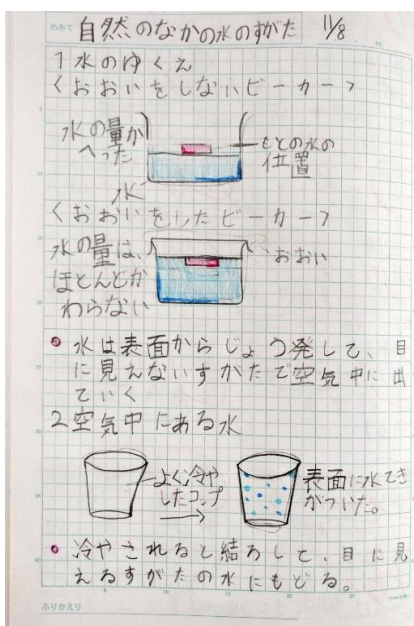 めあて 自然のなかの水のすがた 11/8
1 水のゆくえ
〈おおいをしないビーカー〉
水の量が
へった
もとの水の
位置
水
〈おおいをしたビーカー〉
水の量は、
ほとんどか
わらない
おおい
水は表面からじょう発して、目
に見えないすがたで空気中に出
ていく
2 空気中にある水
よく冷や
したコップ
表面に水てき
がついた。
冷やされると結ろして、目に見
えるすがたの水にもどる。
ふりかえり